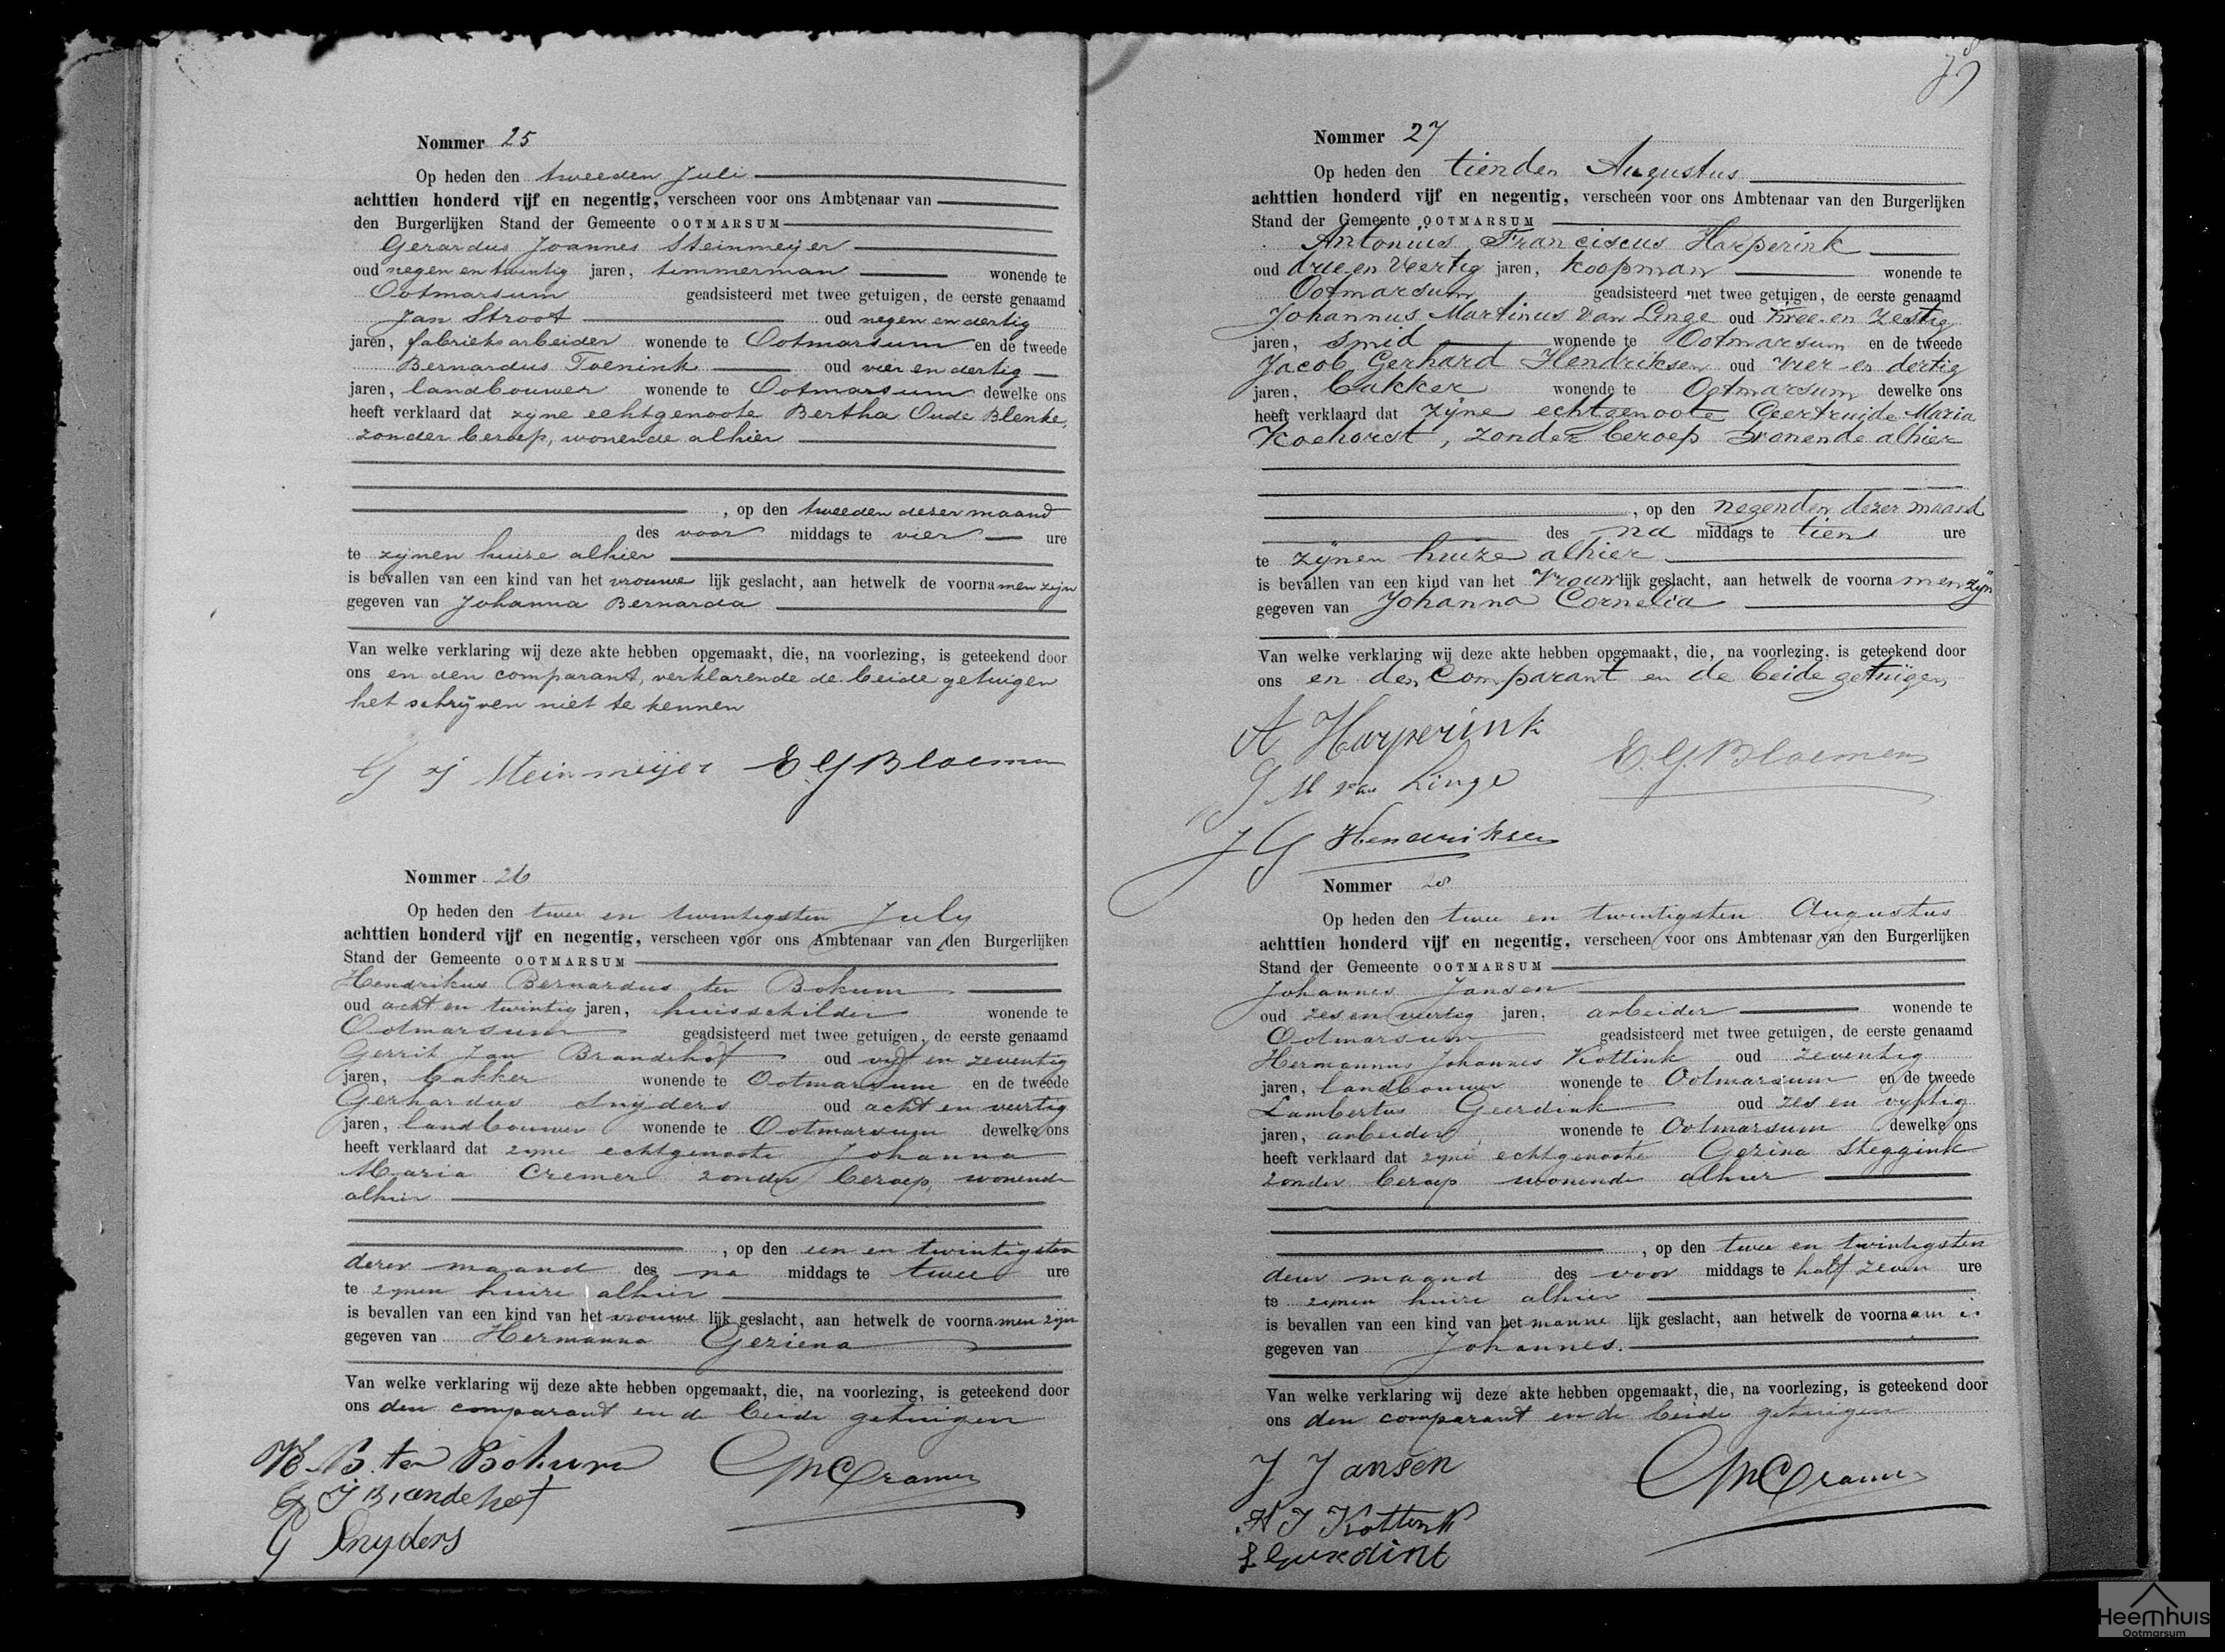 Nommer 25
Op heden den tweeden Juli
achttien honderd vijf en negentig, verscheen voor ons Ambtenaar van
den Burgerlijken Stand der Gemeente OOTMARSUM
Gerardus Joannes Steinmeijer
oud negen en twintig jaren, timmerman wonende te
Ootmarsum geadsisteerd met twee getuigen, de eerste genaamd
Jan Stroot oud negen en dertig
jaren, fabrieksarbeider wonende te Ootmarsum en de tweede
Bernardus Toenink oud vier en dertig
jaren, landbouwer wonende te Ootmarsum dewelke ons
heeft verklaard dat zijne echtgenoote Bertha Oude Blenke,
zonder beroep, wonende alhier
, op den tweeden dezer maand
des voor middags te vier ure
te zijnen huize alhier
is bevallen van een kind van het vrouwe lijk geslacht, aan hetwelk de voorna men zijn
gegeven van Johanna Bernarda
Van welke verklaring wij deze akte hebben opgemaakt, die, na voorlezing, is geteekend door
ons en den comparant, verklarende de beide getuigen
het schrijven niet te kennen
G J Steinmeijer E. G Bloemen
Nommer 26
Op heden den twee en twintigsten July
achttien honderd vijf en negentig, verscheen voor ons Ambtenaar van den Burgerlijken
Stand der Gemeente OOTMARSUM
Hendrikus Bernardus ten Bokum
oud acht en twintig jaren, huisschilder wonende te
Ootmarsum geadsisteerd met twee getuigen, de eerste genaamd
Gerrit Jan Brandehof oud vijf en zeventig
jaren, bakker wonende te Ootmarsum en de tweede
Gerhardus Snijders oud acht en veertig
jaren, landbouwer wonende te Ootmarsum dewelke ons
heeft verklaard dat zijne echtgenoote Johanna
Maria Cremer zonder beroep, wonende
alhier
, op den een en twintigsten
dezer maand des na middags te twee ure
te zijnen huize alhier
is bevallen van een kind van het vrouwe lijk geslacht, aan hetwelk de voorna men zijn
gegeven van Hermanna Geziena
Van welke verklaring wij deze akte hebben opgemaakt, die, na voorlezing, is geteekend door
ons den comparant en de beide getuigen
H. B. ten Bokum Cramer
G J Brandehof
G Snyders
Nommer 27
Op heden den tienden Augustus
achttien honderd vijf en negentig, verscheen voor ons Ambtenaar van den Burgerlijken
Stand der Gemeente OOTMARSUM
Antonius Franciscus Harperink
oud drie en Veertig jaren, koopman wonende te
Ootmarsum geadsisteerd met twee getuigen, de eerste genaamd
Johannus Martinus van Linge oud twee en zestig
jaren, smid wonende te Ootmarsum en de tweede
Jacob Gerhard Hendriksen oud vier en dertig
jaren, bakker wonende te Ootmarsum dewelke ons
heeft verklaard dat zijne echtgenoote Geertruide Maria
Koehorst, zonder beroep wonende alhier
, op den negenden dezer maand
des na middags te tien ure
te zijnen huize alhier
is bevallen van een kind van het Vrouw lijk geslacht, aan hetwelk de voorna men zijn
gegeven van Johanna Cornelia
Van welke verklaring wij deze akte hebben opgemaakt, die, na voorlezing, is geteekend door
ons en den Comparant en de beide getuigen
A Harperink
E. G. Bloemen
G M van Linge
J G Hendriksen
Nommer 28
Op heden den twee en twintigsten Augustus
achttien honderd vijf en negentig, verscheen voor ons Ambtenaar van den Burgerlijken
Stand der Gemeente OOTMARSUM
Johannes Jansen
oud zes en veertig jaren, arbeider wonende te
Ootmarsum geadsisteerd met twee getuigen, de eerste genaamd
Hermannus Johannes Kottink oud zeventig
jaren, landbouwer wonende te Ootmarsum en de tweede
Lambertus Geerdink oud zes en vijftig
jaren, arbeider, wonende te Ootmarsum dewelke ons
heeft verklaard dat zijne echtgenoote Gezina Steggink
zonder beroep wonende alhier
, op den twee en twintigsten
dezer maand des voor middags te half zeven ure
te zijnen huize alhier
is bevallen van een kind van het manne lijk geslacht, aan hetwelk de voorna am is
gegeven van Johannes.
Van welke verklaring wij deze akte hebben opgemaakt, die, na voorlezing, is geteekend door
ons den comparant en de beide getuigen
J Jansen Cramer
H J Kottink
L Geerdink
Heemhuis
Ootmarsum